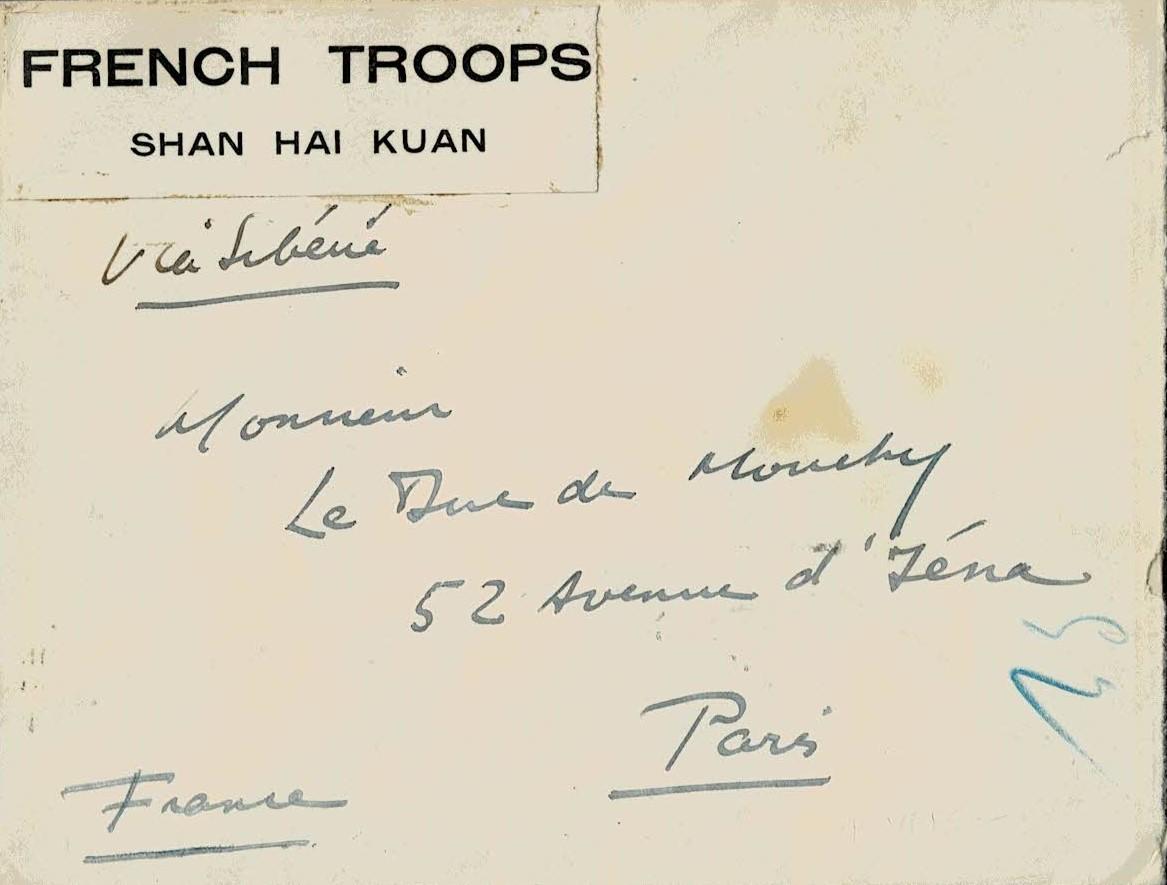 FRENCH TROOPS
SHAN HAI KUAN
Via Sibérie
Monsieur
Le Duc de Mouchy
52 Avenue d'Iéna
Paris
France